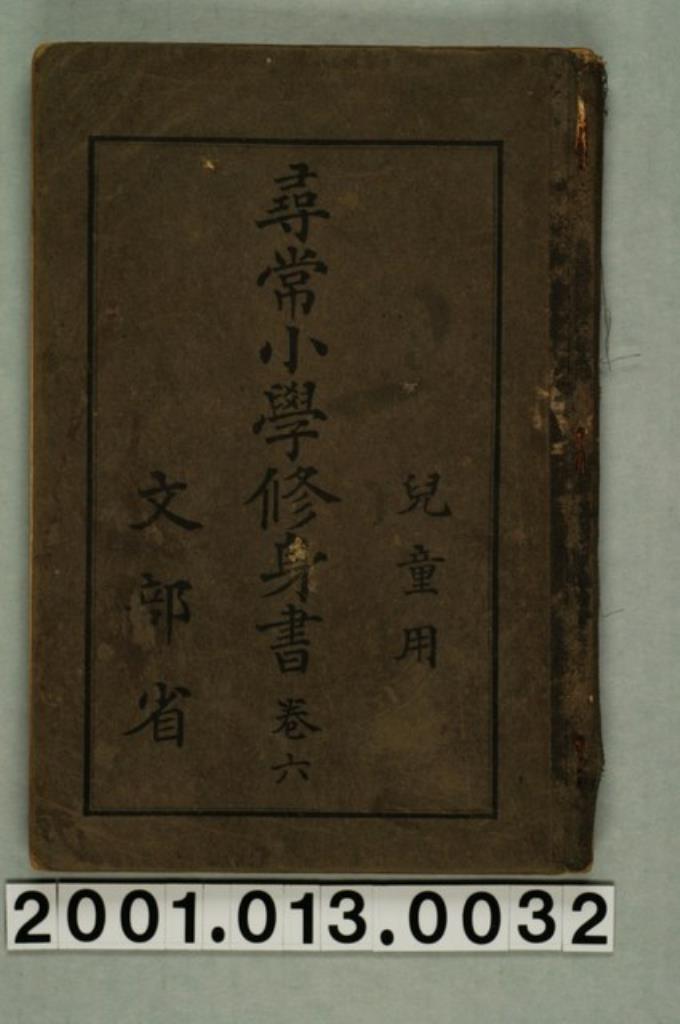 兒童用
尋常小學修身書 卷六
文部省
2001.013.0032